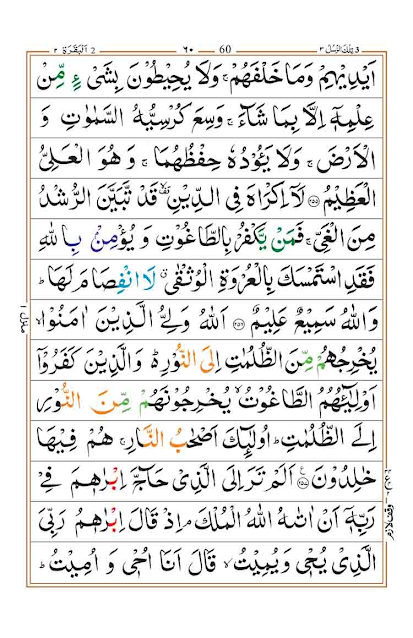 3 تِلْكَ الرُّسُل ٣ 60 ٦٠ 2 اَلْبَقَرَة ٢
اَيْدِيْهِمْ وَمَا خَلْفَهُمْ ۚ وَلَا يُحِيْطُوْنَ بِشَیْءٍ مِّنْ
عِلْمِهٖۤ اِلَّا بِمَا شَآءَ ۚ وَسِعَ كُرْسِيُّهُ السَّمٰوٰتِ وَ
الْاَرْضَ ۚ وَلَا يَـُٔوْدُهٗ حِفْظُهُمَا ۚ وَ هُوَ الْعَلِىُّ
الْعَظِيْمُ ﴿۲۵۵﴾ لَاۤ اِكْرَاهَ فِى الدِّيْنِ ۙ قَدْ تَّبَيَّنَ الرُّشْدُ
مِنَ الْغَىِّ ۚ فَمَنْ يَّكْفُرْ بِالطَّاغُوْتِ وَ يُؤْمِنْۢ بِاللّٰهِ
فَقَدِ اسْتَمْسَكَ بِالْعُرْوَةِ الْوُثْقٰى ۗ لَا انْفِصَامَ لَهَا ؕ
وَاللّٰهُ سَمِيْعٌ عَلِيْمٌ ﴿۲۵۶﴾ اَللّٰهُ وَلِىُّ الَّذِيْنَ اٰمَنُوْا ۙ
يُخْرِجُهُمْ مِّنَ الظُّلُمٰتِ اِلَى النُّوْرِ ؕ وَالَّذِيْنَ كَفَرُوْۤا
اَوْلِيٰٓـُٔهُمُ الطَّاغُوْتُ ۙ يُخْرِجُوْنَهُمْ مِّنَ النُّوْرِ
اِلَى الظُّلُمٰتِ ؕ اُولٰٓئِكَ اَصْحٰبُ النَّارِ ۚ هُمْ فِيْهَا
خٰلِدُوْنَ ﴿۲۵۷﴾ اَلَمْ تَرَ اِلَى الَّذِىْ حَآجَّ اِبْرٰهٖمَ فِىْ
رَبِّهٖۤ اَنْ اٰتٰىهُ اللّٰهُ الْمُلْكَ ۘ اِذْ قَالَ اِبْرٰهٖمُ رَبِّىَ
الَّذِىْ يُحْىٖ وَيُمِيْتُ ۙ قَالَ اَنَا اُحْىٖ وَ اُمِيْتُ ؕ
منزل ١
وقف لازم